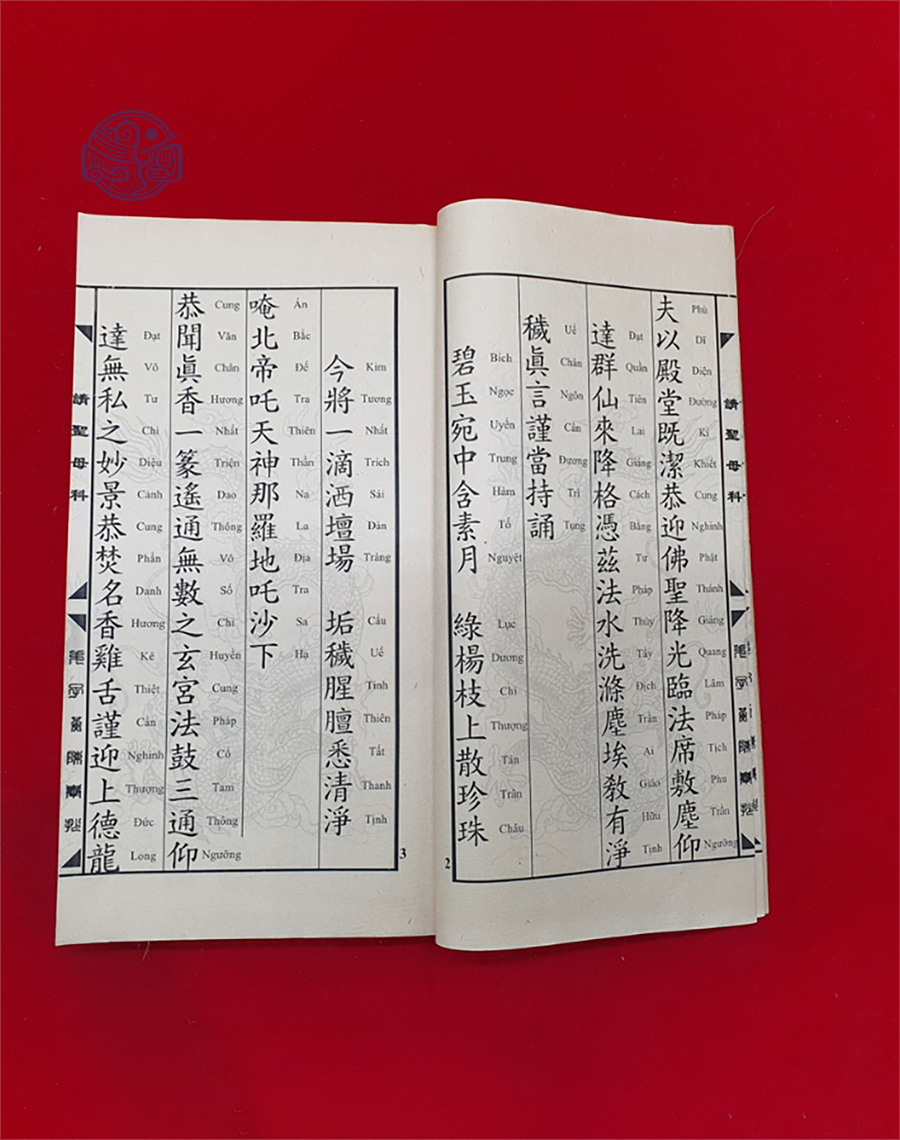 夫以殿堂既潔恭迎佛聖降光臨法席敷塵仰
Phù Dĩ Điện Đường Kí Khiết Cung Nghinh Phật Thánh Giáng Quang Lâm Pháp Tịch Phu Trần Ngưỡng
達群仙來降格憑茲法水洗滌塵埃教有淨
Đạt Quần Tiên Lai Giáng Cách Bằng Tư Pháp Thủy Tẩy Địch Trần Ai Giáo Hữu Tịnh
穢眞言謹當持誦
Uế Chân Ngôn Cẩn Đương Trì Tụng
碧玉宛中含素月 綠楊枝上散珍珠
Bích Ngọc Uyển Trung Hàm Tố Nguyệt Lục Dương Chi Thượng Tán Trần Châu
2
請聖母科
今將一滴洒壇場 垢穢腥膻悉清淨
Kim Tương Nhất Trích Sái Đàn Tràng Cấu Uế Tinh Thiên Tất Thanh Tịnh
唵北帝吒天神那羅地吒沙下
Án Bắc Đế Tra Thiên Thần Na La Địa Tra Sa Hạ
恭聞眞香一篆遙通無數之玄宮法鼓三通仰
Cung Văn Chân Hương Nhất Triện Dao Thông Vô Số Chi Huyền Cung Pháp Cổ Tam Thông Ngưỡng
達無私之妙景恭焚名香雞舌謹迎上德龍
Đạt Vô Tư Chi Diệu Cảnh Cung Phần Danh Hương Kê Thiệt Cẩn Nghinh Thượng Đức Long
3
請聖母科